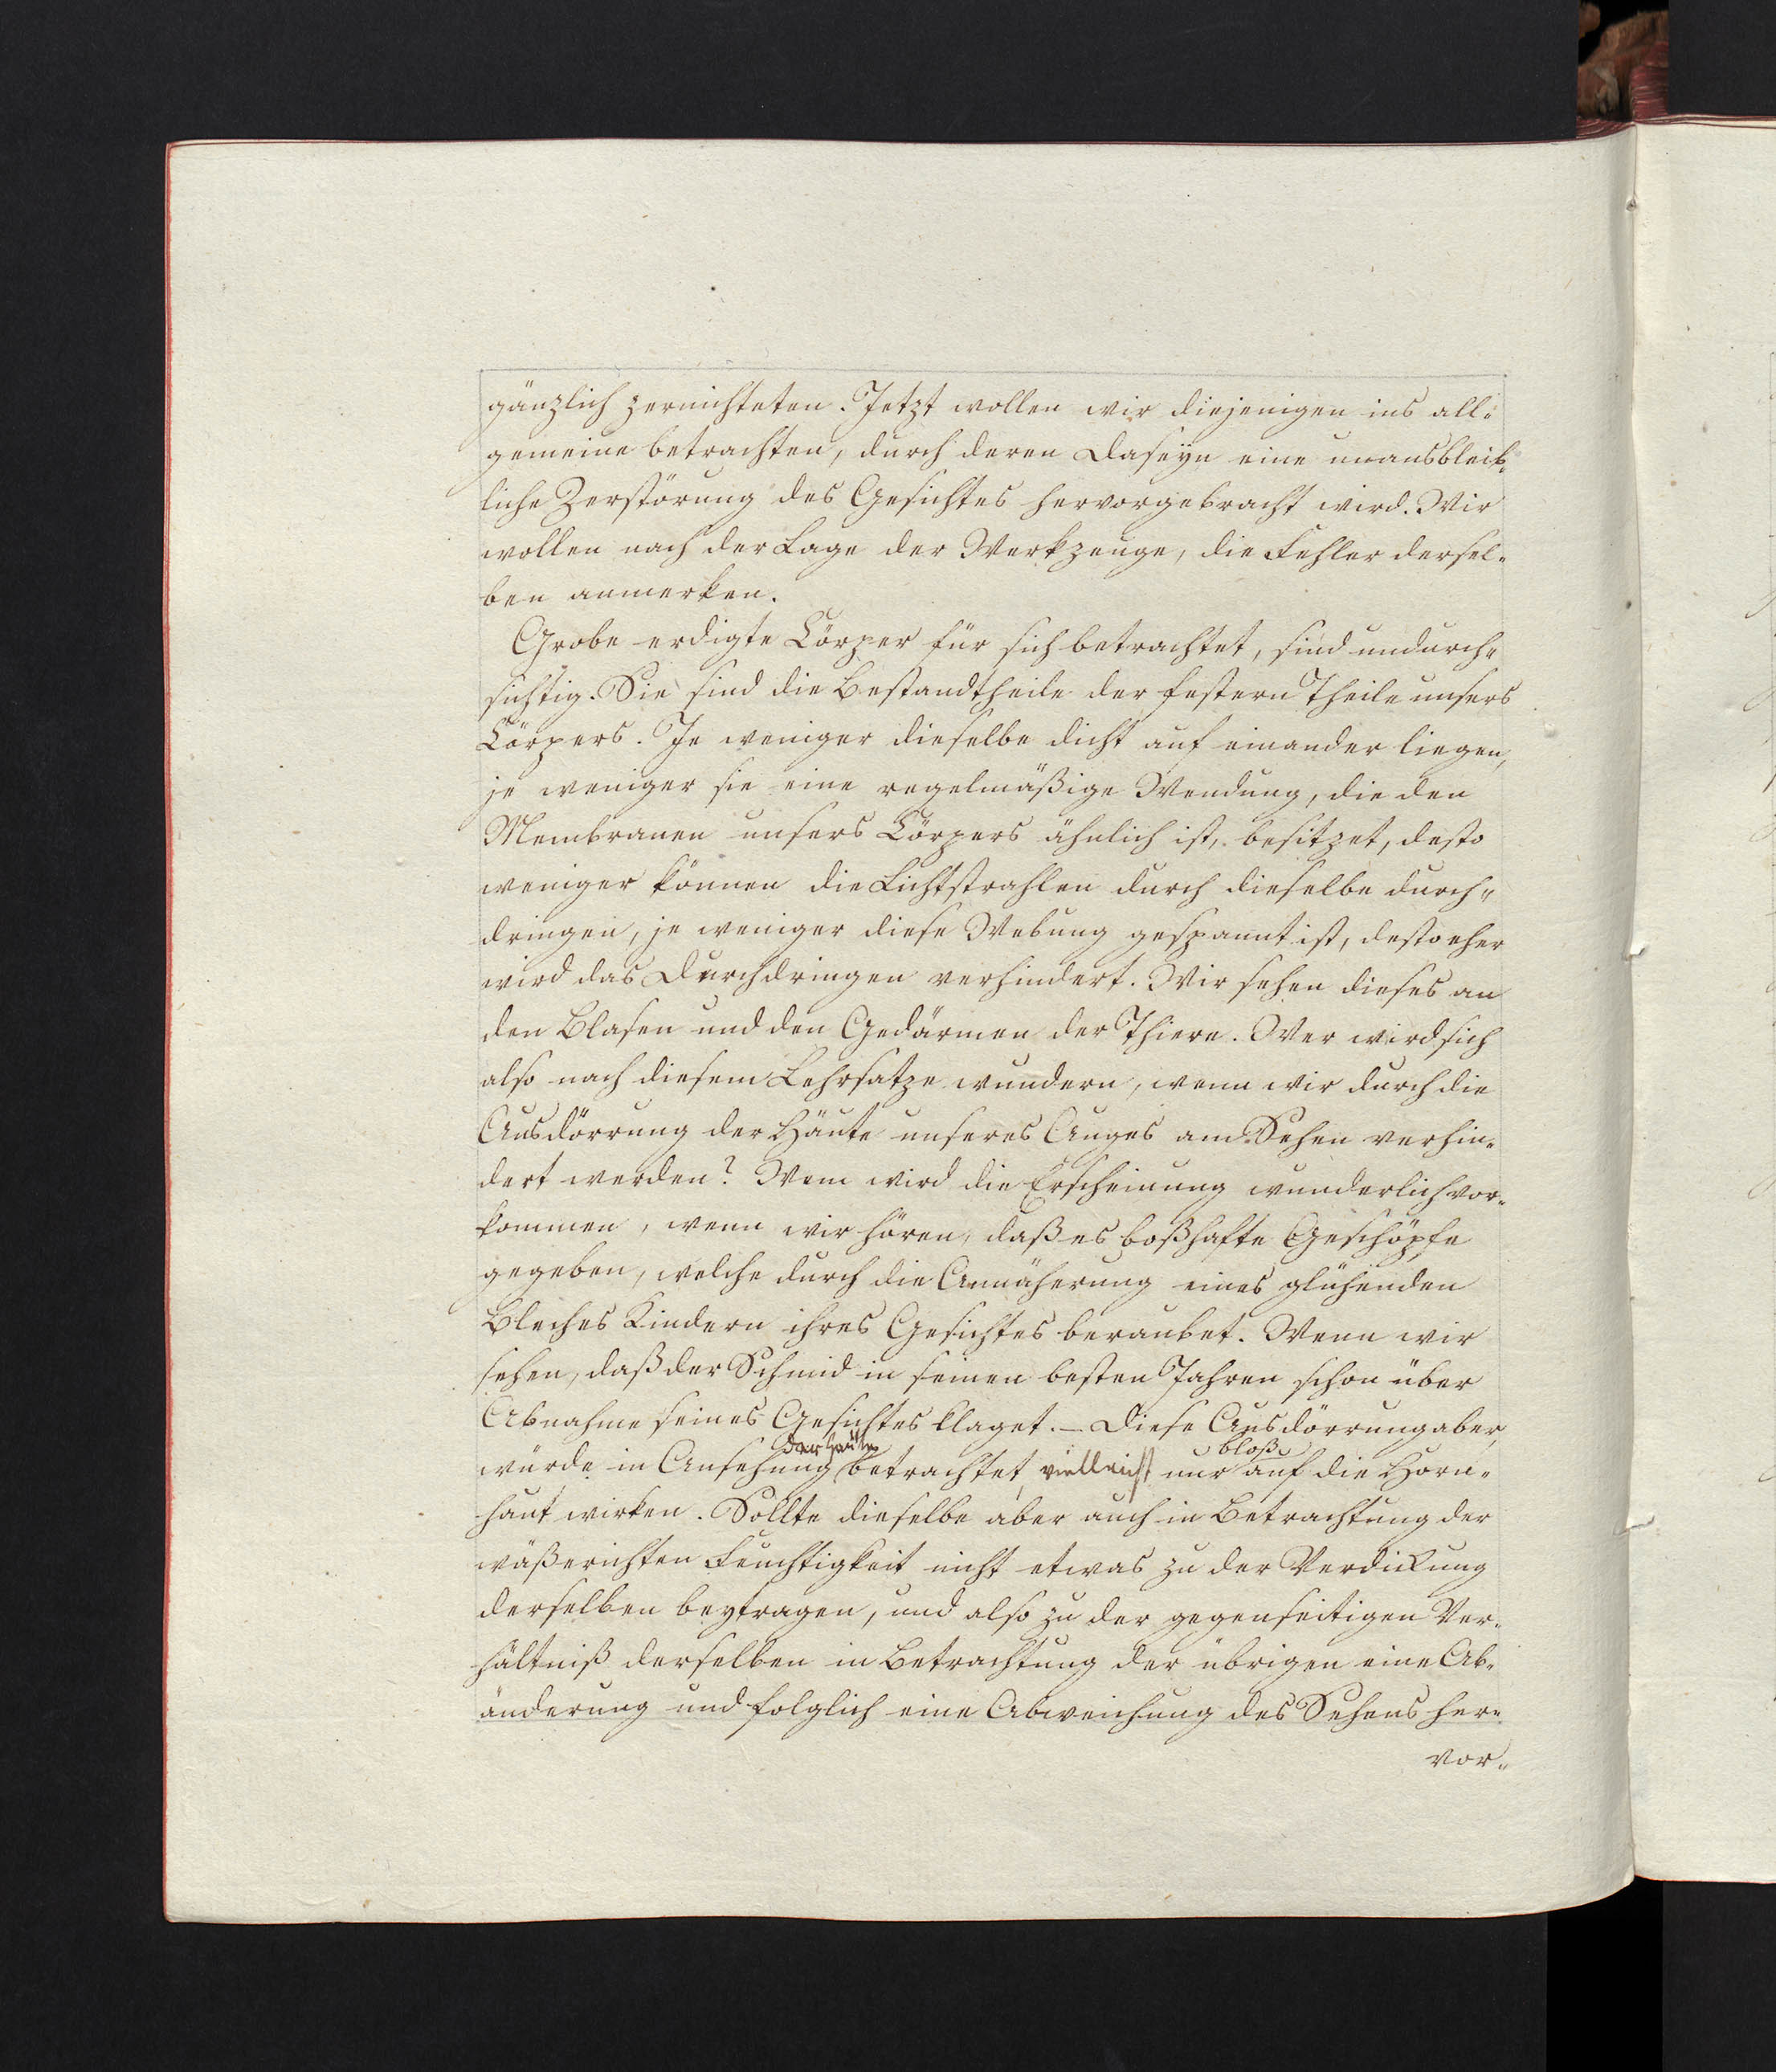 gänzlich zernichteten. Jetzt wollen wir diejenigen ins all-
gemeine betrachten, durch deren Daseyn eine unausbleib-
liche Zerstörung des Gesichtes hervorgebracht wird. Wir
wollen nach der Lage der Werkzeuge, die Fehler dersel-
ben anmerken.
Grobe erdigte Cörper für sich betrachtet, sind undurch-
sichtig. Sie sind die Bestandtheile der festern Theile unsers
Cörpers. Je weniger dieselbe dicht auf einander liegen,
je weniger sie eine regelmäßige Wendung, die den
Membranen unsers Cörpers ähnlich ist, besitzet, desto
weniger können die Lichtstrahlen durch dieselbe durch-
dringen, je weniger diese Webung gespannt ist, desto eher
wird das Durchdringen verhindert. Wir sehen dieses an
den Blasen und den Gedärmen der Thiere. Wer wird sich
also nach diesem Lehrsatze wundern, wenn wir durch die
Ausdörrung der Häute unseres Auges am Sehen verhin-
dert werden? Wem wird die Erscheinung wunderlich vor-
kommen, wenn wir hören, daß es boßhafte Geschöpfe
gegeben, welche durch die Annäherung eines glühenden
Bleches Kindern ihres Gesichtes beraubet. Wenn wir
sehen, daß der Schmid in seinen besten Jahren schon über
Abnahme seines Gesichtes klaget. – Diese Ausdörrung aber,
der Häute bloß
würde in Ansehung betrachtet, vielleicht nur auf die Horn-
haut wirken. Sollte dieselbe aber auch in Betrachtung der
wäßerichten Feuchtigkeit nicht etwas zu der Verdickung
derselben beytragen, und also zu der gegenseitigen Ver-
hältniß derselben in Betrachtung der übrigen eine Ab-
änderung und folglich eine Abweichung des Sehens her-
vor-